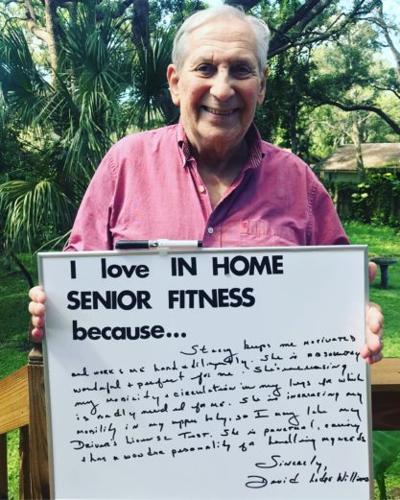 I love IN HOME
SENIOR FITNESS
because...
Stacy keeps me motivated
and works me hard + diligently. She is absolutely
wonderful + perfect for me. She's increasing
my mobility + circulation in my legs for which
is badly needed for me. She is increasing my
mobility in my upper body, so I may take my
Driver's License Test. She is personal, caring
+ has a wonder personality for handling my needs
Sincerely,
David Williams